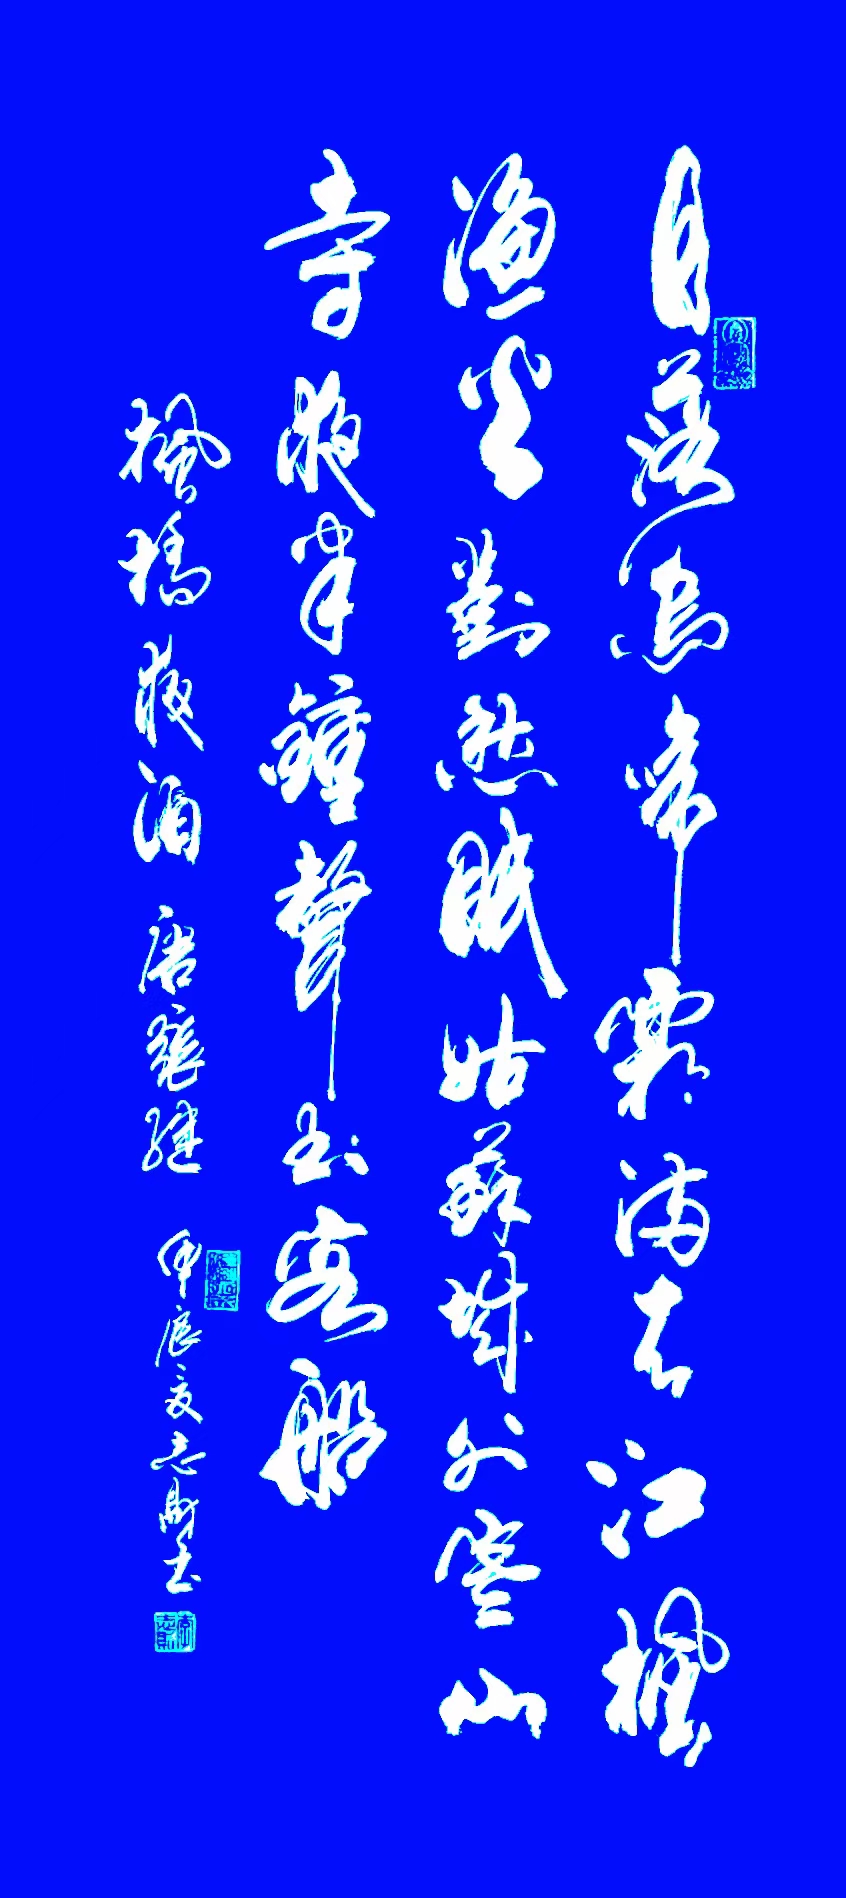 月落烏啼霜滿天江楓
漁火對愁眠姑蘇城外寒山
寺夜半鐘聲到客船
楓橋夜泊 唐張继 甲辰夏志財书